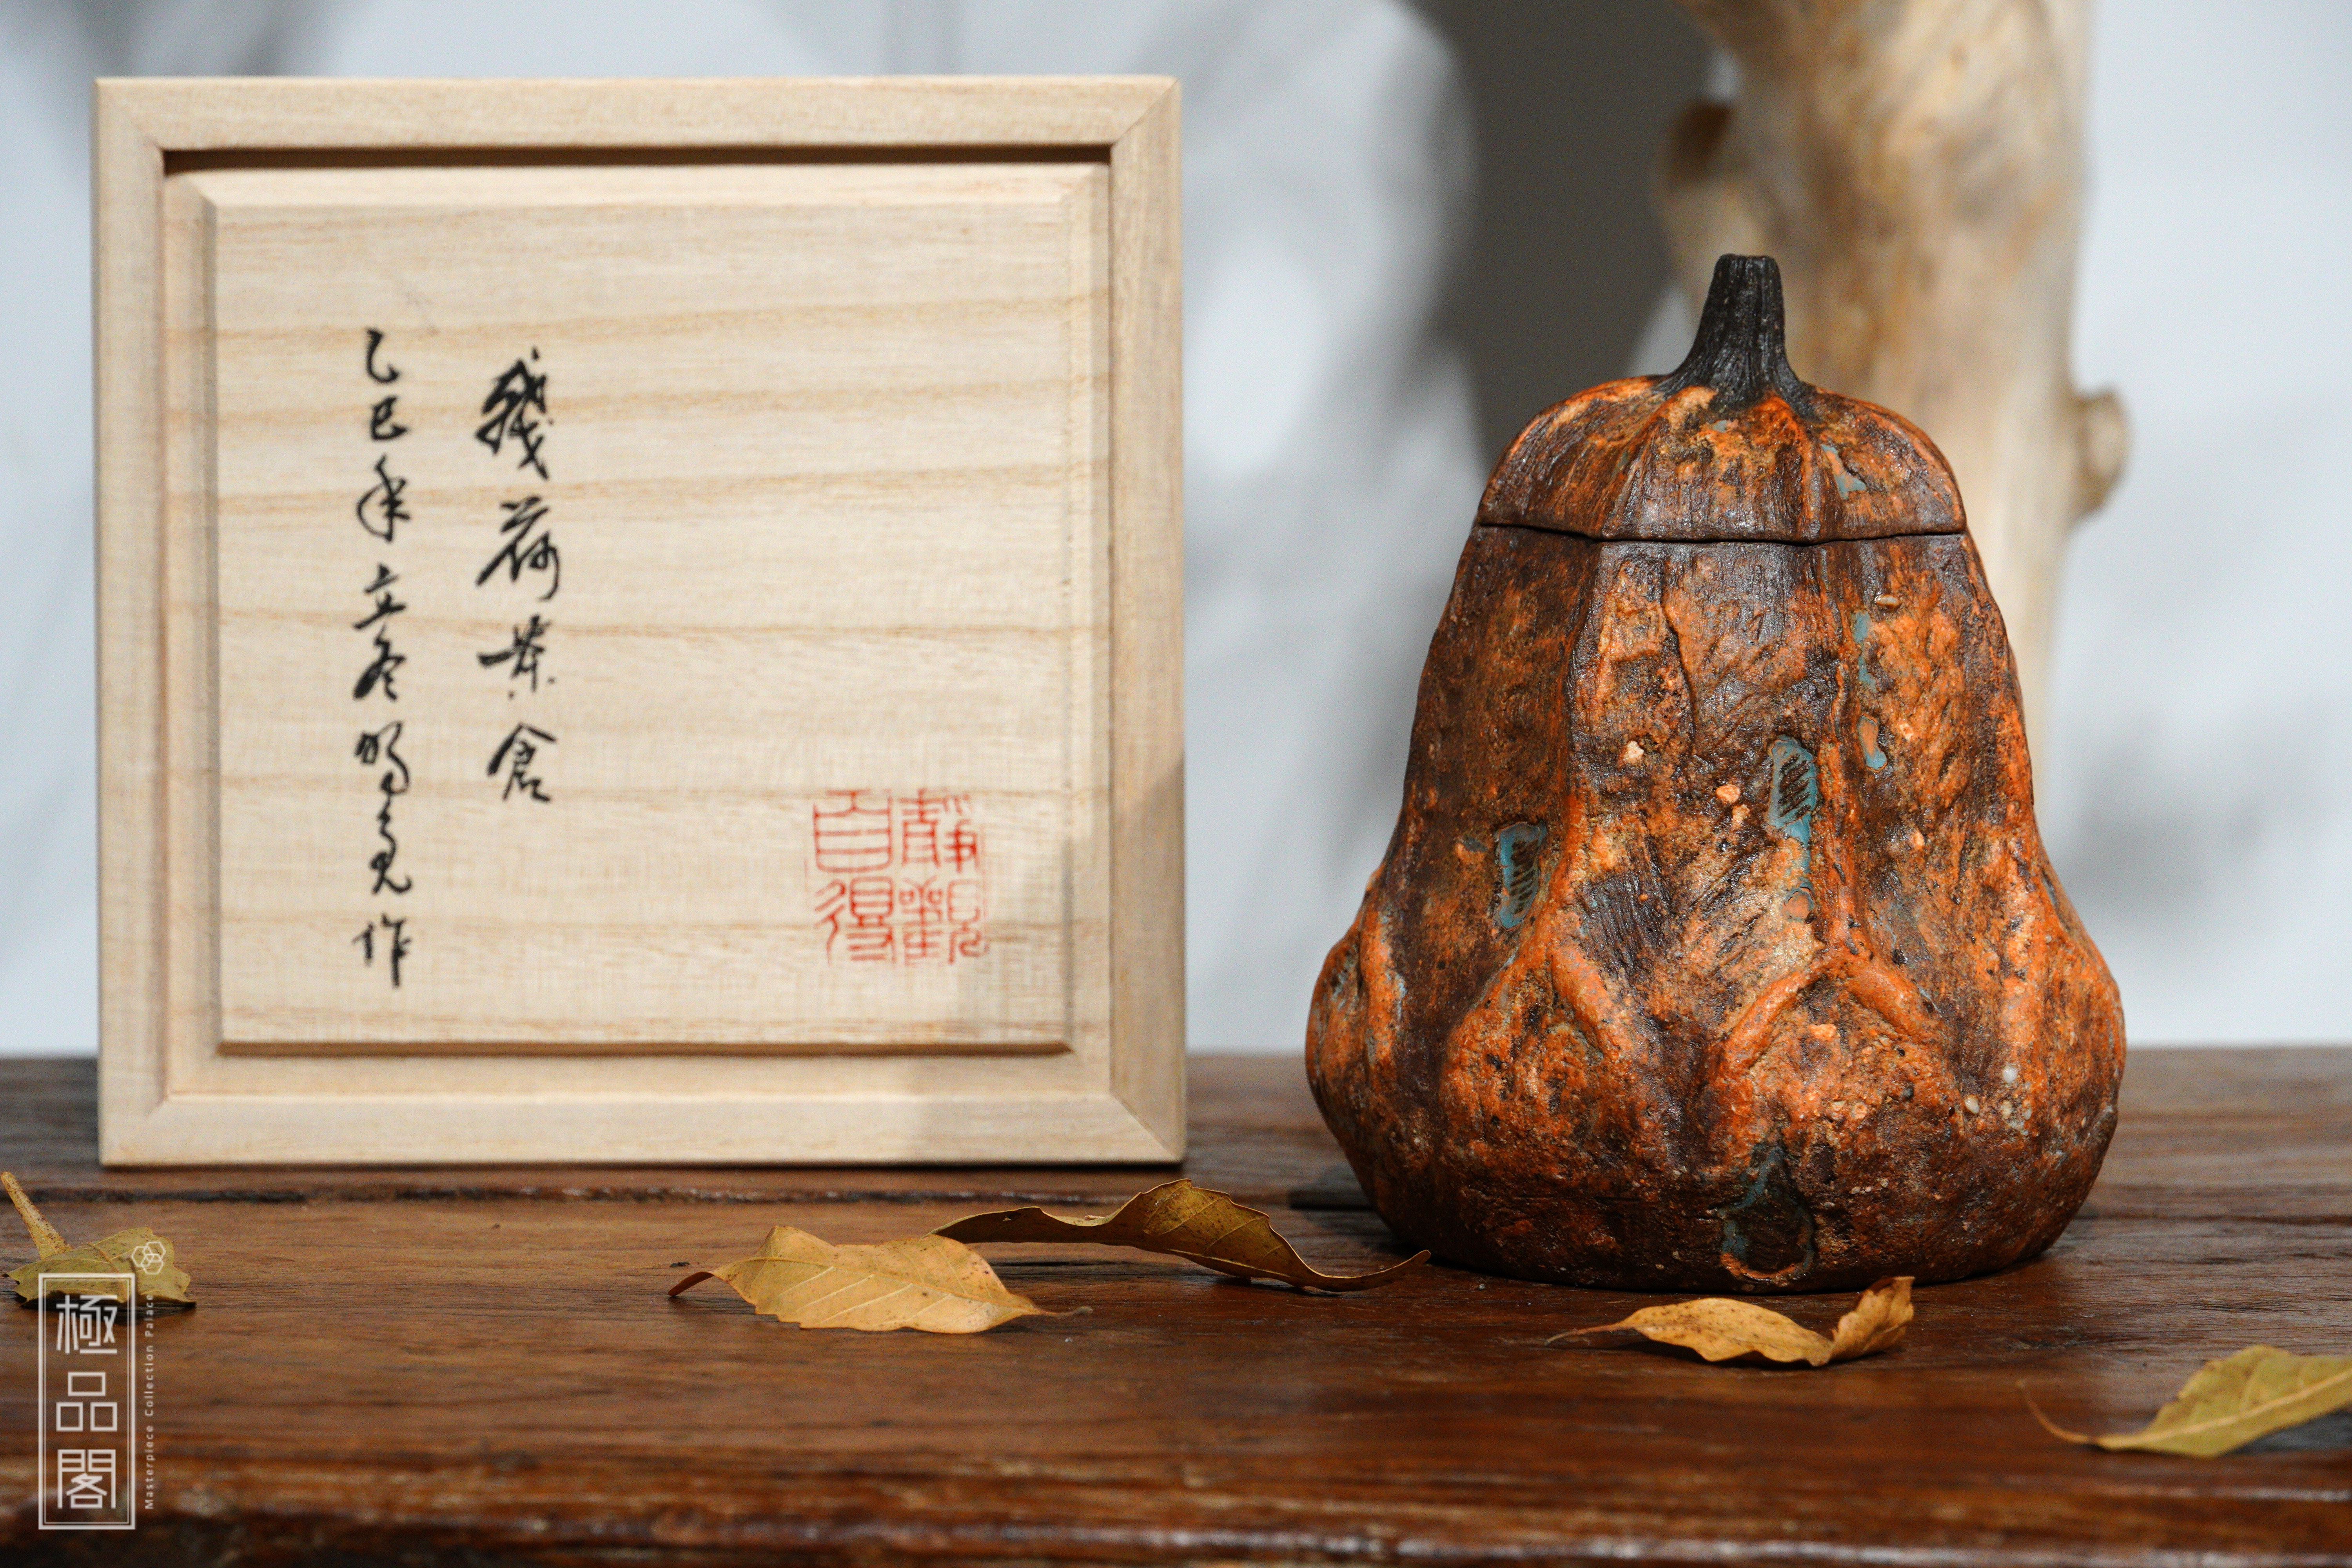 殘荷茶倉
乙巳年立冬亮作
靜觀自得
極品閣
Masterpiece Collection Palace